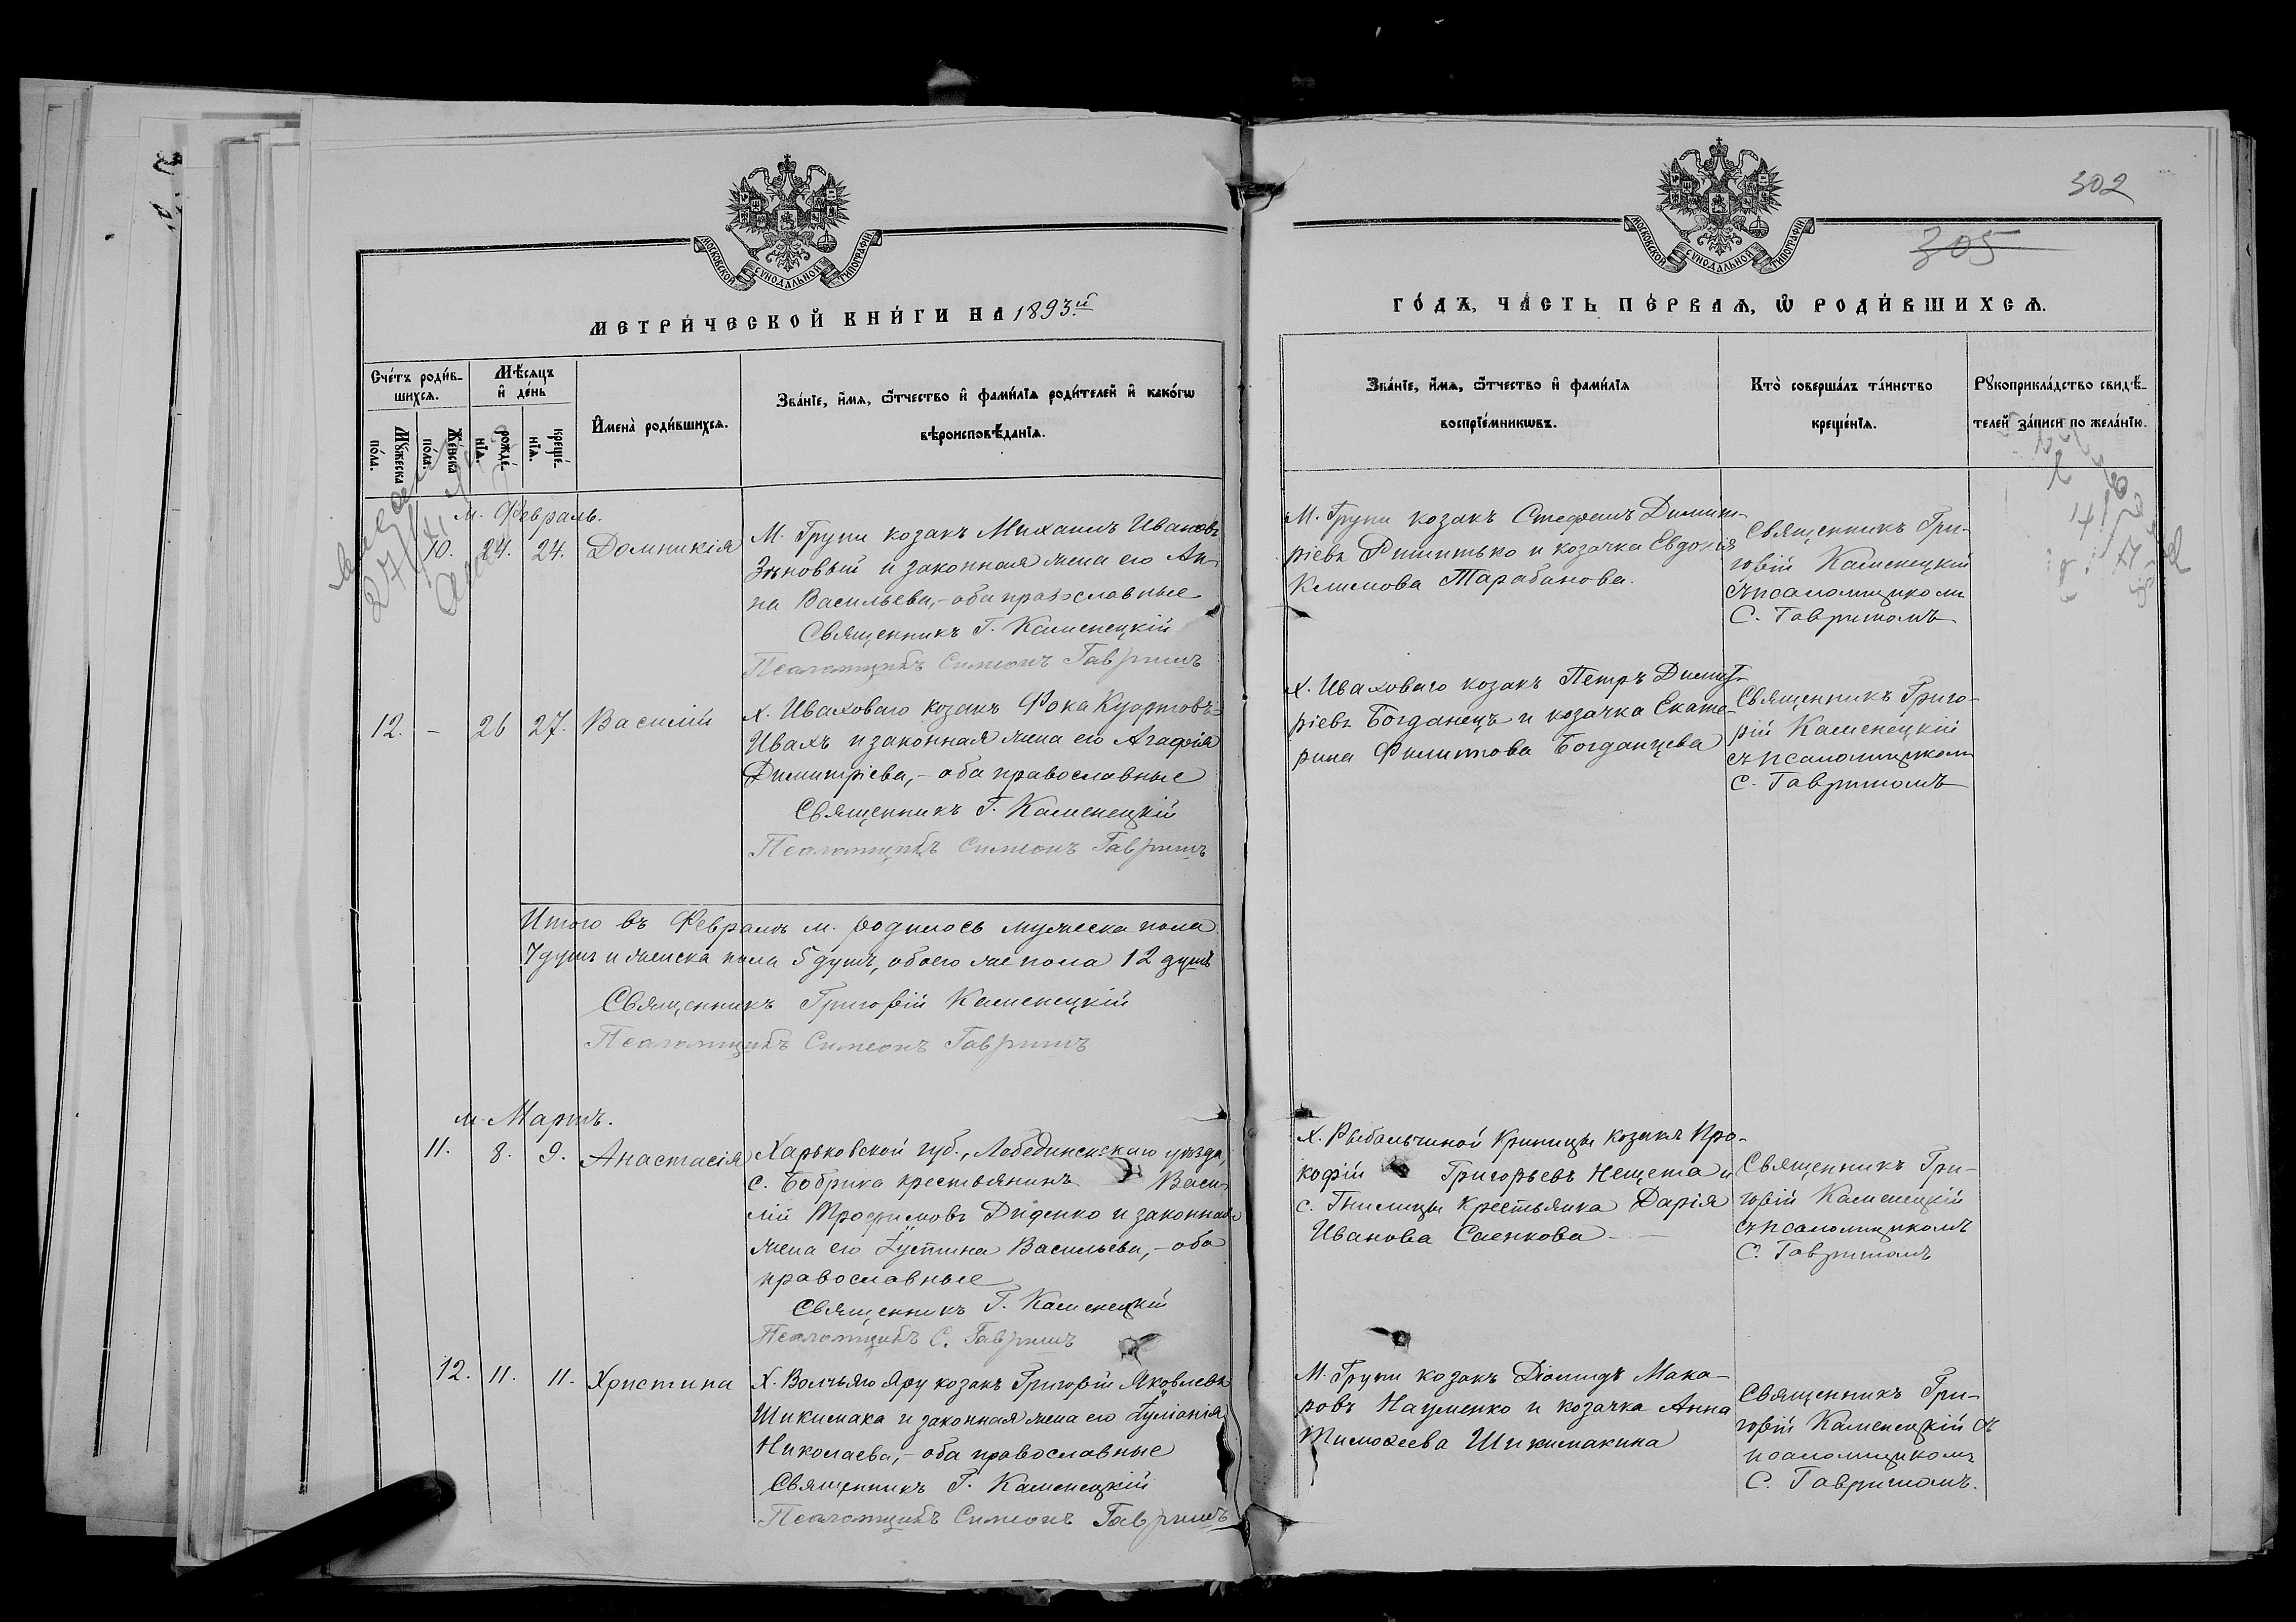 МОСКОВСКОЙ СѴНОДАЛЬНОЙ ТИПОГРАФІИ
МЕТРИ́ЧЕСКОЙ КНИ́ГИ НА 1893й
Сче́тъ роди́вшихсѧ.
Мѣ́сѧцъ и҆ де́нь
Мꙋ́жеска по́ла.
Же́нска по́ла.
рожде́нїѧ.
креще́нїѧ.
И҆мена̀ роди́вшихсѧ.
Зва́нїе, и҆́мѧ, ѻ҆́тчество и҆ фами́лїѧ роди́телей и҆ како́гѡ
вѣроисповѣ́данїѧ.
м. Февраль.
10. 24. 24. Домникія
М. Груни козакъ Михаилъ Ивановъ
Зѣновый и законная жена его Ан-
на Васильева, - оба православные
Священникъ Г. Каменецкій
Псаломщикъ Симеонъ Гавришъ
12. - 26 27. Василій
Х. Иваховаго козакъ Фока
Ивахъ и законная жена его Агафія
Димитріева, - оба православные
Священникъ Г. Каменецкій
Псаломщикъ Симеонъ Гавришъ
Итого въ Февралѣ м. родилось мужеска пола
7 душъ и женска пола 5 душъ, обоего же пола 12 душъ
Священникъ Григорій Каменецкій
Псаломщикъ Симеонъ Гавришъ
м. Мартъ.
11. 8. 9. Анастасія
Харьковской губ., Лебединскаго уѣзда,
с. Бобрика крестьянинъ Васи-
лій Трофимовъ Диденко и законная
жена его Іустина Васильева, - оба
православные
Священникъ Г. Каменецкій
Псаломщикъ С. Гавришъ
12. 11. 11. Христина
Х. Волчьяго Яру козакъ Григорій Яковлевъ
Шикимака и законная жена его Іуліанія
Николаева, - оба православные
Священникъ Г. Каменецкій
Псаломщикъ Симеонъ Гавришъ
302
305
МОСКОВСКОЙ СѴНОДАЛЬНОЙ ТИПОГРАФІИ
ГО́ДЪ, ЧА́СТЬ ПЕ́РВАѦ, Ѡ҆ РОДИ́ВШИХСѦ.
Зва́нїе, и҆́мѧ, ѻ҆́тчество и҆ фами́лїѧ
воспрїе́мникѡвъ.
Кто̀ соверша́лъ та́инство
креще́нїѧ.
Рꙋкоприкла́дство свидѣ́-
телей за́писи по жела́нїю.
М. Груни козакъ Стефанъ Димит-
ріевъ и козачка Евдокія
Климова Тарабанова.
Священникъ Гри-
горій Каменецкій
съ псаломщикомъ
С. Гавришомъ
Х. Иваховаго козакъ Петръ Димит-
ріевъ Богданецъ и козачка Екате-
рина Филиппова Богданцева
Священникъ Григо-
рій Каменецкій
съ псаломщикомъ
С. Гавришомъ
Х. Рыбальчиной Криницы козакъ Про-
кофій Григорьевъ Нещета и
с. Гнилицы крестьянка Дарія
Иванова Саенкова
Священникъ Гри-
горій Каменецкій
съ псаломщикомъ
С. Гавришомъ
М. Груни козакъ Діомидъ Мака-
ровъ Науменко и козачка Анна
Тимоѳеева Шикимакина
Священникъ Гри-
горій Каменецкій съ
псаломщикомъ
С. Гавришомъ.